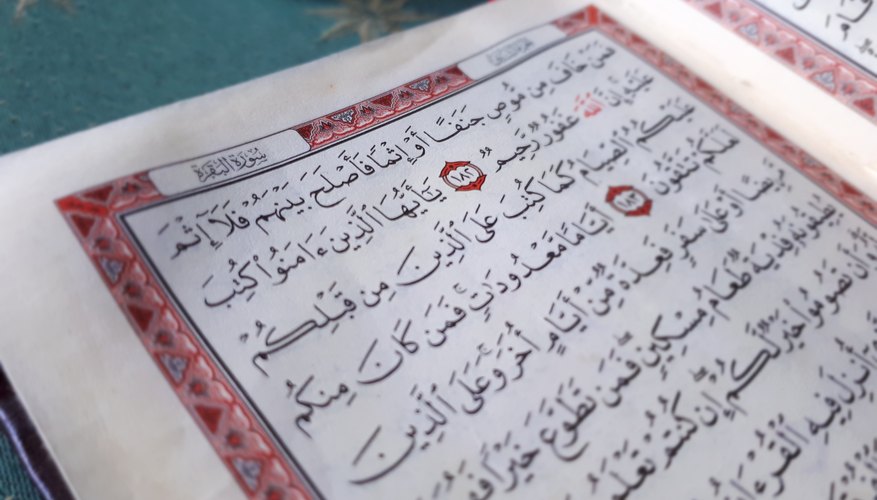 سُورَةُ البَقَرَةِ
فَمَنْ خَافَ مِن مُّوصٍ جَنَفًا أَوْ إِثْمًا فَأَصْلَحَ بَيْنَهُمْ فَلَآ إِثْمَ
عَلَيْهِ إِنَّ ٱللَّهَ غَفُورٌ رَّحِيمٌ ١٨٢ يَٰٓأَيُّهَا ٱلَّذِينَ ءَامَنُوا۟ كُتِبَ
عَلَيْكُمُ ٱلصِّيَامُ كَمَا كُتِبَ عَلَى ٱلَّذِينَ مِن قَبْلِكُمْ
لَعَلَّكُمْ تَتَّقُونَ ١٨٣ أَيَّامًا مَّعْدُودَٰتٍ ۚ فَمَن كَانَ مِنكُم
مَّرِيضًا أَوْ عَلَىٰ سَفَرٍ فَعِدَّةٌ مِّنْ أَيَّامٍ أُخَرَ ۚ وَعَلَى ٱلَّذِينَ
يُطِيقُونَهُۥ فِدْيَةٌ طَعَامُ مِسْكِينٍ ۖ فَمَن تَطَوَّعَ خَيْرًا فَهُوَ
وَأَن تَصُومُوا۟ خَيْرٌ لَّكُمْ ۖ إِن كُنتُمْ
أُنزِلَ فِيهِ